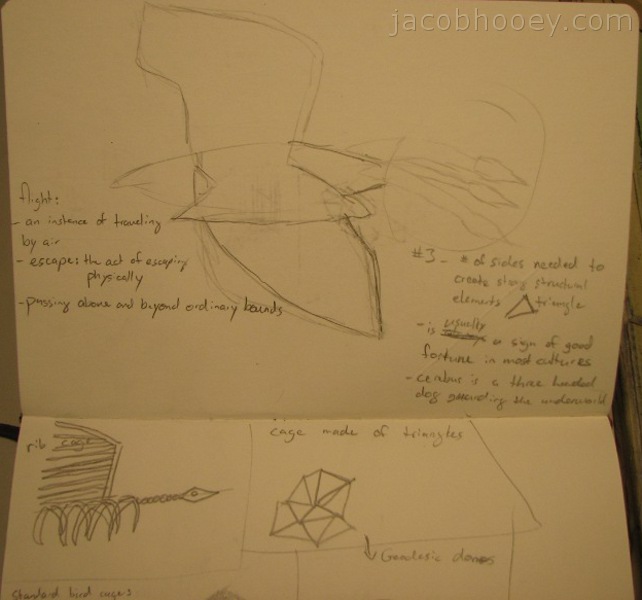 jacobhooey.com
flight:
- an instance of traveling
by air
- escape: the act of escaping
physically
- passing above and beyond ordinary bounds
#3 - # of sides needed to
create strong structural
elements triangle
- is usually a sign of good
fortune in most cultures
- cerebus is a three headed
dog guarding the underworld
rib cage
cage made of triangles
Geodesic domes
Standard bird cages